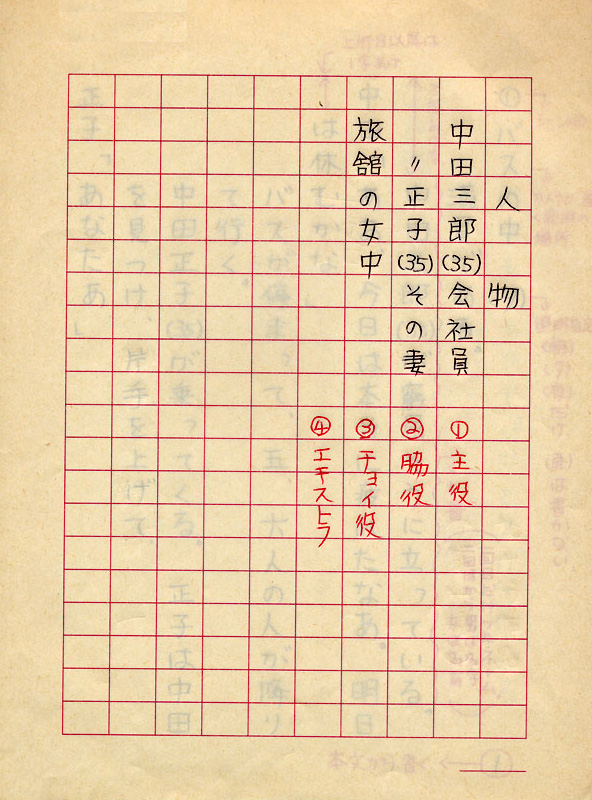 人物
中田三郎(35)会社員
〃正子(35)その妻
旅館の女中
①主役
②脇役
③チョイ役
④エキストラ